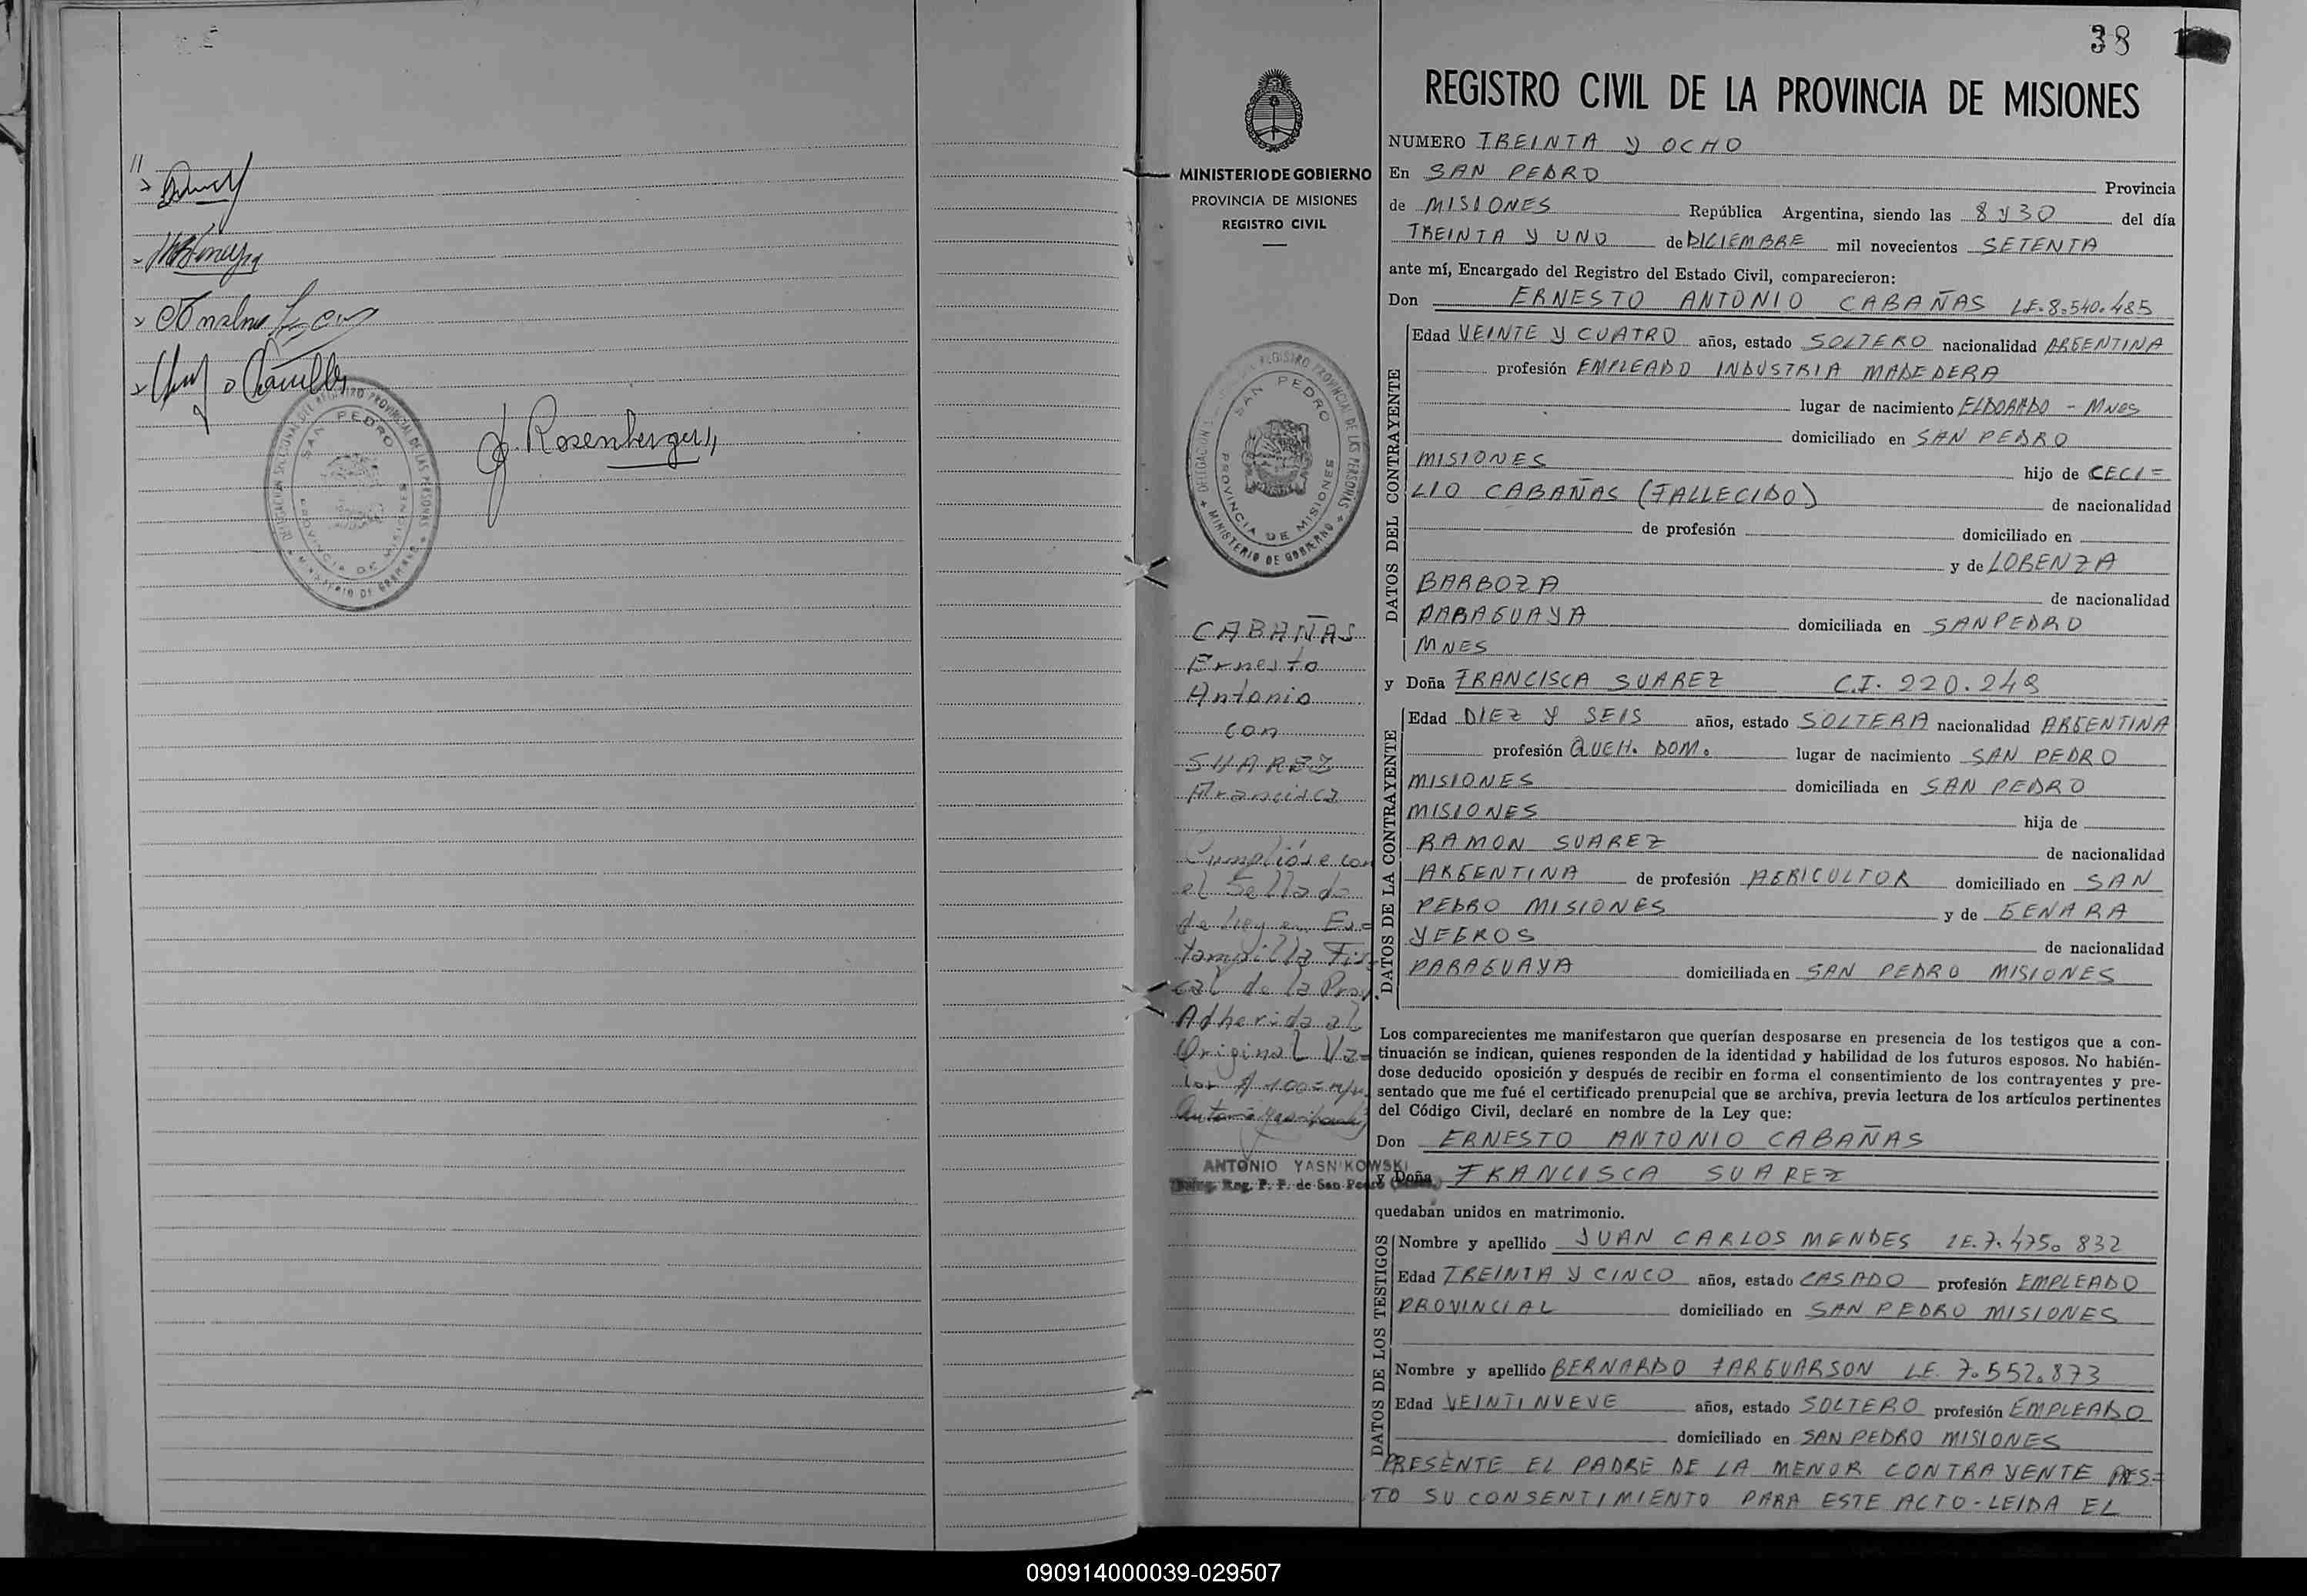 J. Rosenberger
DELEGACION SECCIONAL DEL REGISTRO PROVINCIAL DE LAS PERSONAS
SAN PEDRO
PROVINCIA DE MISIONES
MINISTERIO DE GOBIERNO
MINISTERIO DE GOBIERNO
PROVINCIA DE MISIONES
REGISTRO CIVIL
REGISTRO PROVINCIAL DE LAS PERSONAS
SAN PEDRO
PROVINCIA DE MISIONES
MINISTERIO DE GOBIERNO
CABAÑAS
Ernesto
Antonio
con
SUAREZ
Francisca
Cumplióse con
el Sellado
de Ley en Es=
tampilla Fis=
cal de la Prov
Adherida al
Original Va=
lor $ 100= m/n.
ANTONIO YASNIKOWSKI
Reg. P. P. de San Pedro
38
REGISTRO CIVIL DE LA PROVINCIA DE MISIONES
NUMERO TREINTA Y OCHO
En SAN PEDRO Provincia
de MISIONES República Argentina, siendo las 8 y 30 del día
TREINTA Y UNO de DICIEMBRE mil novecientos SETENTA
ante mí, Encargado del Registro del Estado Civil, comparecieron:
Don ERNESTO ANTONIO CABAÑAS LE. 8.540.485
DATOS DEL CONTRAYENTE
Edad VEINTE Y CUATRO años, estado SOLTERO nacionalidad ARGENTINA
profesión EMPLEADO INDUSTRIA MADEDERA
lugar de nacimiento ELDORADO - Mnes
domiciliado en SAN PEDRO
MISIONES hijo de CECI=
LIO CABAÑAS (FALLECIDO) de nacionalidad
de profesión domiciliado en
y de LORENZA
BARBOZA de nacionalidad
PARAGUAYA domiciliada en SAN PEDRO
MNES
y Doña FRANCISCA SUAREZ C.I. 220.248
DATOS DE LA CONTRAYENTE
Edad DIEZ Y SEIS años, estado SOLTERA nacionalidad ARGENTINA
profesión QUEH. DOM. lugar de nacimiento SAN PEDRO
MISIONES domiciliada en SAN PEDRO
MISIONES hija de
RAMON SUAREZ de nacionalidad
ARGENTINA de profesión AGRICULTOR domiciliado en SAN
PEDRO MISIONES y de GENARA
YEGROS de nacionalidad
PARAGUAYA domiciliada en SAN PEDRO MISIONES
Los comparecientes me manifestaron que querían desposarse en presencia de los testigos que a con-
tinuación se indican, quienes responden de la identidad y habilidad de los futuros esposos. No habién-
dose deducido oposición y después de recibir en forma el consentimiento de los contrayentes y pre-
sentado que me fué el certificado prenupcial que se archiva, previa lectura de los artículos pertinentes
del Código Civil, declaré en nombre de la Ley que:
Don ERNESTO ANTONIO CABAÑAS
y Doña FRANCISCA SUAREZ
quedaban unidos en matrimonio.
DATOS DE LOS TESTIGOS
Nombre y apellido JUAN CARLOS MENDES LE. 7.475.832
Edad TREINTA Y CINCO años, estado CASADO profesión EMPLEADO
PROVINCIAL domiciliado en SAN PEDRO MISIONES
Nombre y apellido BERNARDO FARGUARSON LE. 7.552.873
Edad VEINTINUEVE años, estado SOLTERO profesión EMPLEADO
domiciliado en SAN PEDRO MISIONES
PRESENTE EL PADRE DE LA MENOR CONTRAYENTE PRES=
TO SU CONSENTIMIENTO PARA ESTE ACTO - LEIDA EL
090914000039-029507